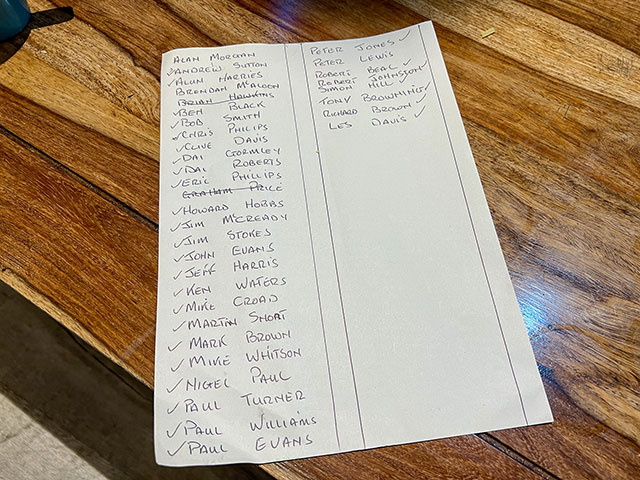 ALAN MORGAN
✓ANDREW SUTTON
✓ALUN HARRIES
BRENDAN McALOON
BRIAN HAWKINS
✓BEN BLACK
✓BOB SMITH
✓CHRIS PHILIPS
✓CLIVE DAVIS
✓DAI GORMLEY
✓DAI ROBERTS
✓ERIC PHILLIPS
GRAHAM PRICE
✓HOWARD HOBBS
✓JIM McCREADY
✓JIM STOKES
✓JOHN EVANS
✓JEFF HARRIS
✓KEN WATERS
✓MIKE CROAD
✓MARTIN SHORT
✓MARK BROWN
✓MIKE WHITSON
✓NIGEL PAUL
✓PAUL TURNER
✓PAUL WILLIAMS
✓PAUL EVANS
PETER JONES ✓
PETER LEWIS
ROBERT BEAL ✓
ROBERT JOHNSON ✓
SIMON HILL ✓
TONY BROWNING ✓
RICHARD BROWN ✓
LES DAVIS ✓